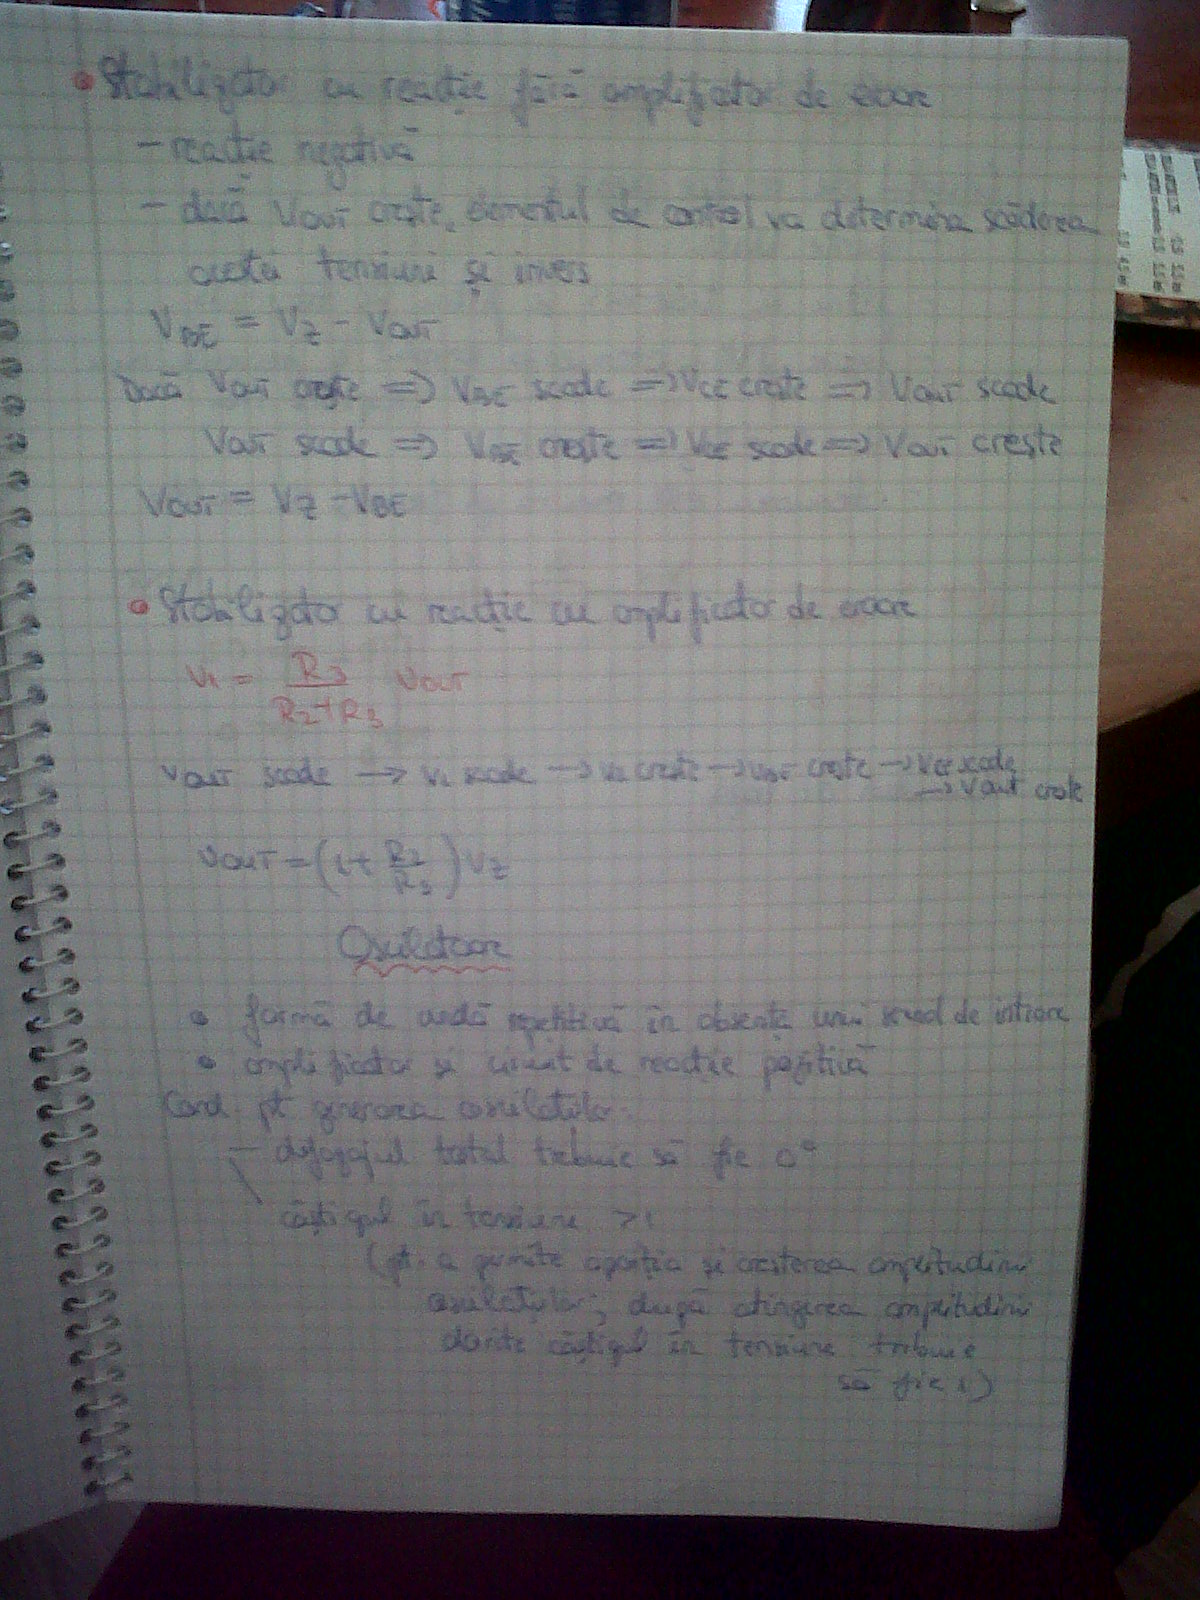 • Stabilizator cu reacție fără amplificator de eroare
- reacție negativă
- dacă VOUT crește, elementul de control va determina scăderea
acestei tensiuni și invers
VBE = VZ - VOUT
Dacă VOUT crește => VBE scade => VCE crește => VOUT scade
VOUT scade => VBE crește => VCE scade => VOUT crește
VOUT = VZ - VBE
• Stabilizator cu reacție cu amplificator de eroare
V1 = R3 / (R2+R3) VOUT
VOUT scade → V1 scade → V2 crește → VBE crește → VCE scade
→ VOUT crește
VOUT = (1 + R2/R3) VZ
Oscilatoare
• formă de undă repetitivă în absența unui semnal de intrare
• amplificator și circuit de reacție pozitivă
Cond. pt generarea oscilațiilor:
- defazajul total trebuie să fie 0°
câștigul în tensiune >1
(pt. a permite apariția și creșterea amplitudinii
oscilațiilor; după atingerea amplitudinii
dorite câștigul în tensiune trebuie
să fie 1)